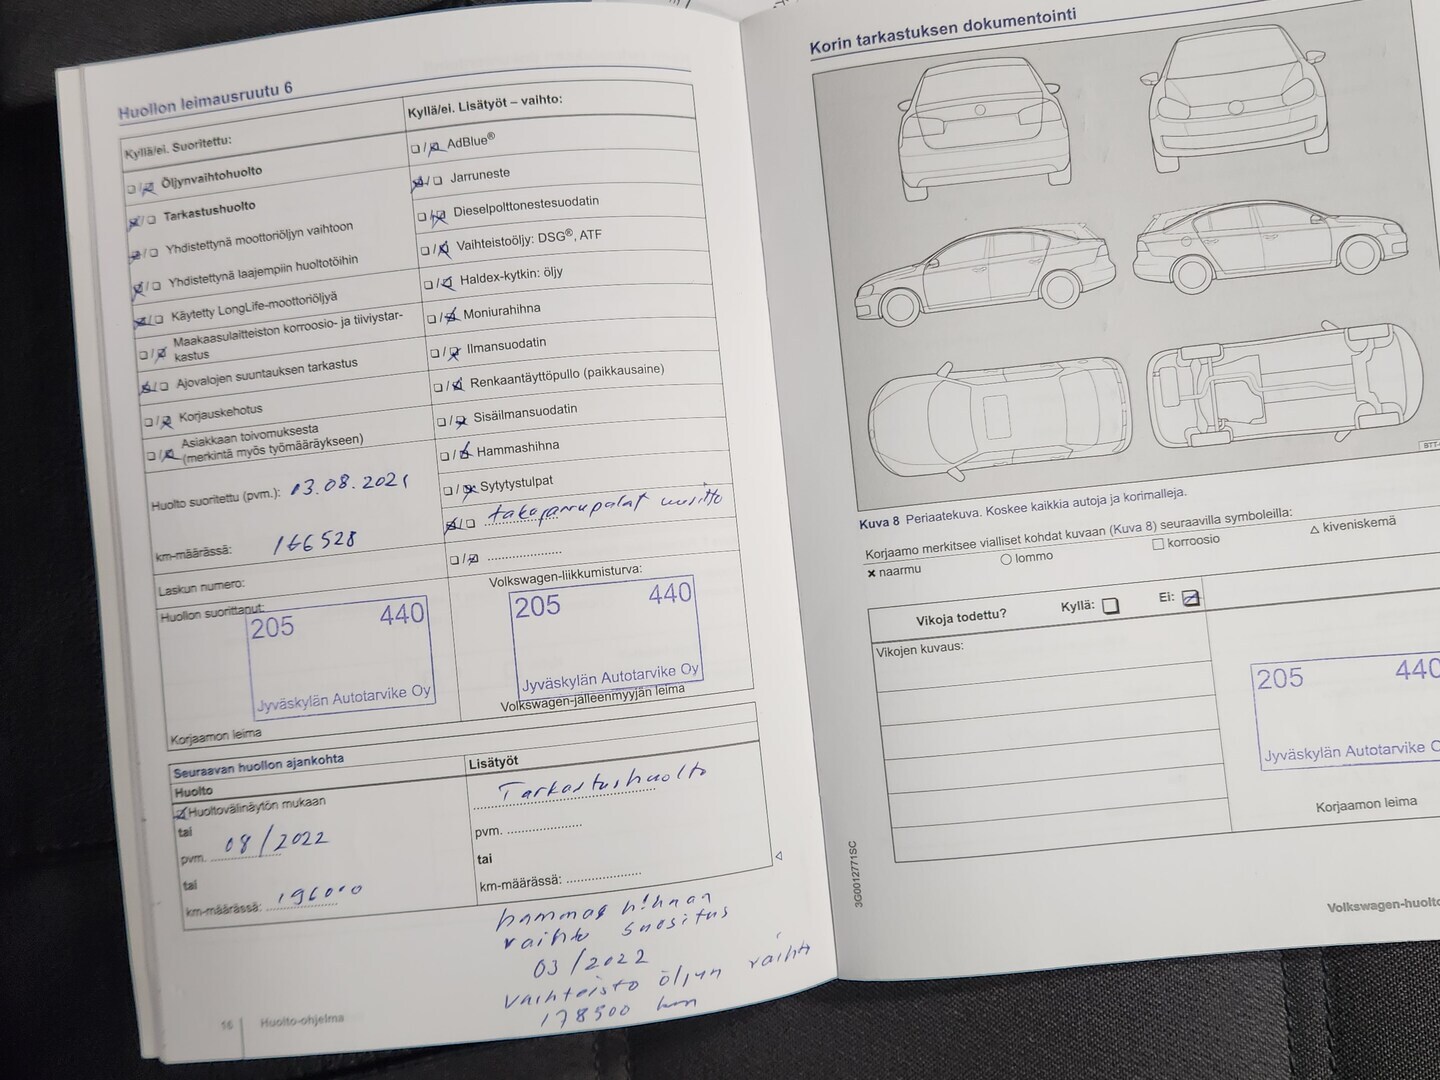 Huollon leimausruutu 6
Kyllä/ei. Suoritettu:
Öljynvaihtohuolto
Tarkastushuolto
Yhdistettynä moottoriöljyn vaihtoon
Yhdistettynä laajempiin huoltotöihin
Käytetty LongLife-moottoriöljyä
Maakaasulaitteiston korroosio- ja tiiviystar-
kastus
Ajovalojen suuntauksen tarkastus
Korjauskehotus
Asiakkaan toivomuksesta
(merkintä myös työmääräykseen)
Huolto suoritettu (pvm.): 03.08.2021
km-määrässä: 166528
Laskun numero:
Huollon suorittanut:
205 440
Jyväskylän Autotarvike Oy
Korjaamon leima
Kyllä/ei. Lisätyöt – vaihto:
AdBlue®
Jarruneste
Dieselpolttonestesuodatin
Vaihteistoöljy: DSG®, ATF
Haldex-kytkin: öljy
Moniurahihna
Ilmansuodatin
Renkaantäyttöpullo (paikkausaine)
Sisäilmansuodatin
Hammashihna
Sytytystulpat
takajarrupalat uusittu
Volkswagen-liikkumisturva:
205 440
Jyväskylän Autotarvike Oy
Volkswagen-jälleenmyyjän leima
Seuraavan huollon ajankohta
Huolto
Huoltovälinäytön mukaan
tai
pvm. 08/2022
tai
km-määrässä: 196000
Lisätyöt
Tarkastushuolto
pvm.
tai
km-määrässä:
hammas hihnan
vaihto suositus
03/2022
vaihteisto öljyn vaihto
178500 km
16 Huolto-ohjelma
Korin tarkastuksen dokumentointi
BTT-
Kuva 8 Periaatekuva. Koskee kaikkia autoja ja korimalleja.
Korjaamo merkitsee vialliset kohdat kuvaan (Kuva 8) seuraavilla symboleilla:
naarmu lommo korroosio kiveniskemä
Vikoja todettu? Kyllä: Ei:
Vikojen kuvaus:
205 440
Jyväskylän Autotarvike O
Korjaamon leima
3G0012771SC
Volkswagen-huolto